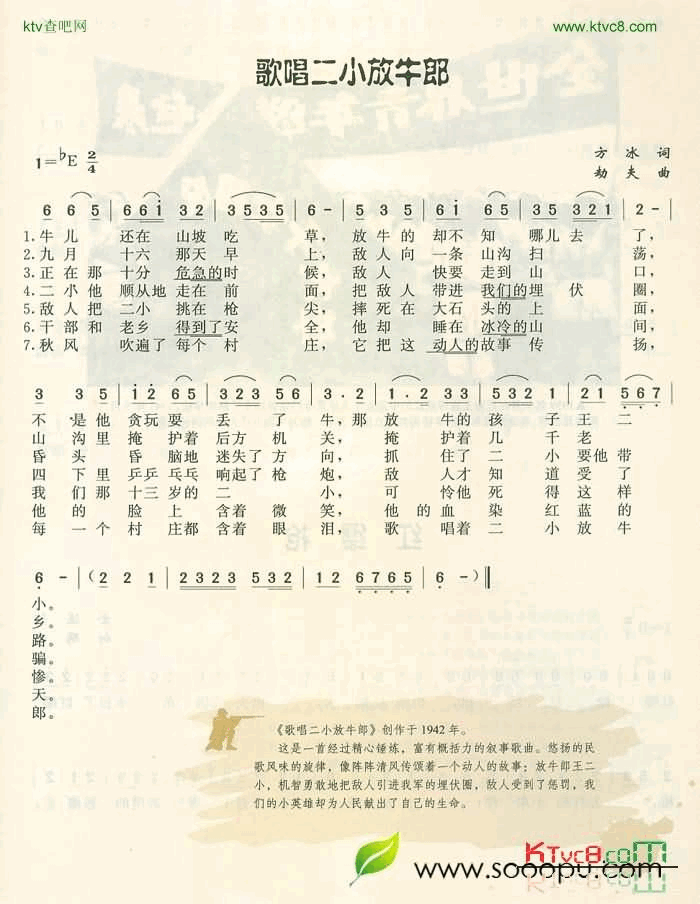 ktv查吧网
www.ktvc8.com
歌唱二小放牛郎
1=♭E 2/4
方冰词
劫夫曲
6 6 5 | 6 6 i 3 2 | 3 5 3 5 | 6 - | 3 5 3 5 | 6 i 6 5 | 3 5 3 2 1 | 2 - |
1.牛儿 还在 山坡 吃 草, 放牛的 却不 知 哪儿 去 了,
2.九月 十六 那天 早 上, 敌人 向 一条 山沟 扫 荡,
3.正在 那 十分 危急的 时 候, 敌人 快要 走到 山 口,
4.二小 他 顺从地 走在 前 面, 把敌人 带进 我们的 埋 伏 圈,
5.敌人 把 二小 挑在 枪 尖, 摔死 在 大石 头的 上 面,
6.干部 和 老乡 得到了 安 全, 他却 睡在 冰冷的 山 间,
7.秋风 吹遍 了 每个 村 庄, 它把 这 动人的 故事 传 扬,
3 3 5 | i 2 6 5 | 3 3 2 3 5 | 3 · 2 | 1 · 2 3 3 | 5 3 2 1 | 2 1 5 6 7 |
不 是他 贪玩 耍 丢 了 牛, 那 放 牛的 孩 子 王 二
山 沟里 掩 护着 后方 机 关, 掩 护着 几 千 老
昏 头 昏 脑地 迷失了 方 向, 抓 住了 二 小 要他 带
四 下里 乒乒 乓乓 响起了 枪 炮, 敌 人才 知 道 受了
我 们那 十三 岁的 二 小, 可 怜他 死 得 这样
他的 脸上 含着 微 笑, 他 的血 染 红 蓝的
每 一个 村 庄都 含着 眼 泪, 歌 唱着 二 小 放牛
6 - | ( 2 2 1 | 2 3 2 3 | 5 5 3 2 | 1 1 2 | 6 7 6 5 | 6 - ) ‖
小。
乡。
路。
骗。
惨。
天。
郎。
《歌唱二小放牛郎》创作于 1942 年。
这是一首经过精心锤练,富有概括力的叙事歌曲。悠扬的民
歌风味的旋律,像阵阵清风传颂着一个动人的故事:放牛郎王二
小,机智勇敢地把敌人引进我军的埋伏圈,敌人受到了惩罚,我
们的小英雄却为人民献出了自己的生命。
KTvc8.com
www.sooopu.com